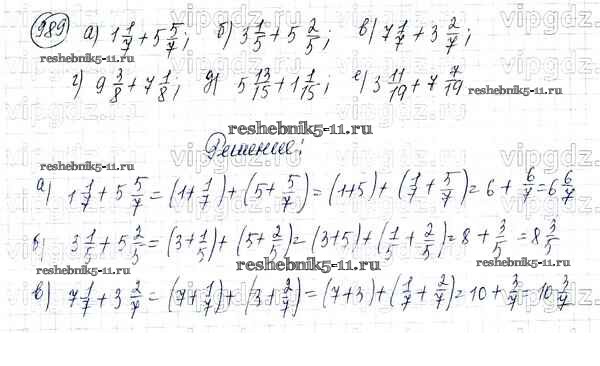 989 а) 1 1/7 + 5 5/7; б) 3 1/5 + 5 2/5; в) 7 1/7 + 3 2/7;
г) 9 3/8 + 7 1/8; д) 5 13/15 + 1 1/15; е) 3 11/19 + 7 7/19
reshebnik5-11.ru
Решение:
а) 1 1/7 + 5 5/7 = (1 + 1/7) + (5 + 5/7) = (1+5) + (1/7 + 5/7) = 6 + 6/7 = 6 6/7
б) 3 1/5 + 5 2/5 = (3 + 1/5) + (5 + 2/5) = (3+5) + (1/5 + 2/5) = 8 + 3/5 = 8 3/5
в) 7 1/7 + 3 2/7 = (7 + 1/7) + (3 + 2/7) = (7+3) + (1/7 + 2/7) = 10 + 3/7 = 10 3/7
vipgdz.com